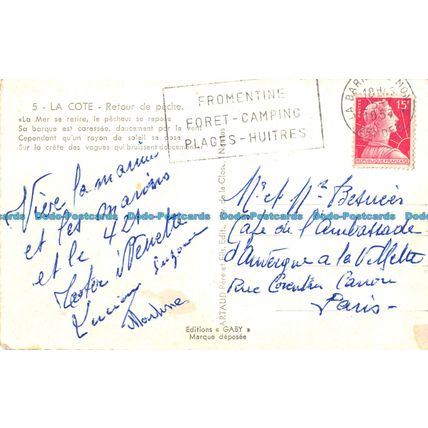 5 - LA COTE - Retour de pêche.
«La Mer se retire, le pêcheur se repose
Sa barque est caressée, doucement par le vent
Cependant qu'un rayon de soleil se dose
Sur la crête des vagues qui bruissent doucement.»
FROMENTINE
FORET-CAMPING
PLAGES-HUITRES
LA BARRE
18H45
POSTES
15F
REPUBLIQUE FRANÇAISE
Vive la marine
et les marins
et le 421
Totor Nénette
Lucien Suzanne
Mr et Mme
Café de l'Ambassade
d'Auvergne à la Villette
Rue Corentin Cariou
Paris
ARTAUD Père et Fils, Edit.
Editions « GABY »
Marque déposée
Dodo-Postcards Dodo-Postcards Dodo-Postcards Dodo-Postcards Dodo-Postcards